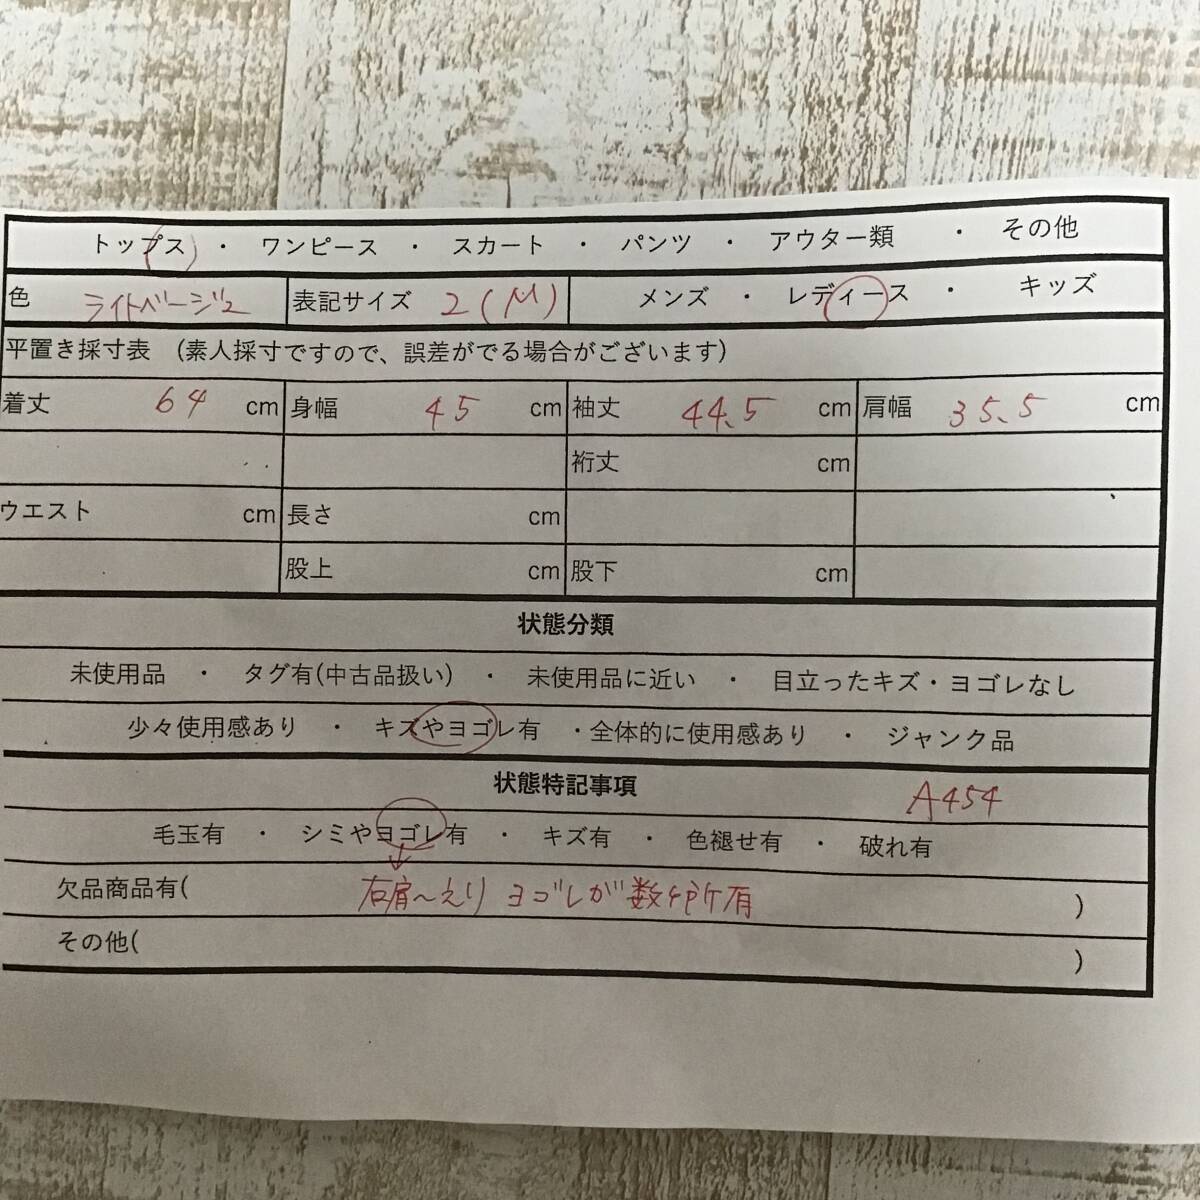 トップス ・ ワンピース ・ スカート ・ パンツ ・ アウター類 ・ その他
色 ライトベージュ 表記サイズ 2(M) メンズ ・ レディース ・ キッズ
平置き採寸表 (素人採寸ですので、誤差がでる場合がございます)
着丈 64 cm 身幅 45 cm 袖丈 44.5 cm 肩幅 35.5 cm
裄丈 cm
ウエスト cm 長さ cm
股上 cm 股下 cm
状態分類
未使用品 ・ タグ有(中古品扱い) ・ 未使用品に近い ・ 目立ったキズ・ヨゴレなし
少々使用感あり ・ キズやヨゴレ有 ・全体的に使用感あり ・ ジャンク品
状態特記事項 A454
毛玉有 ・ シミやヨゴレ有 ・ キズ有 ・ 色褪せ有 ・ 破れ有
欠品商品有( 右肩~えり ヨゴレが数ヶ所有 )
その他( )